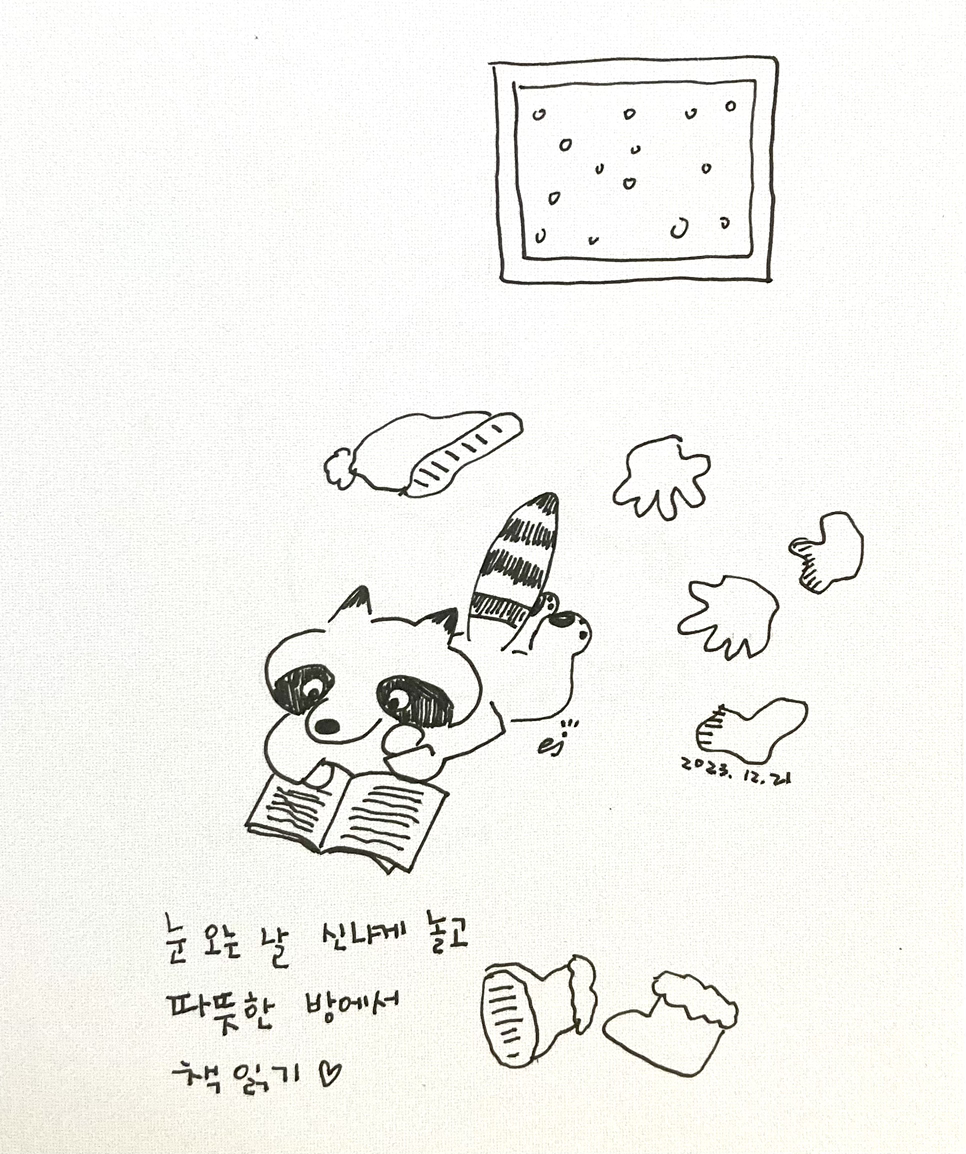 ej
2023. 12. 21
눈 오는 날 신나게 놀고
따뜻한 방에서
책 읽기 ♡